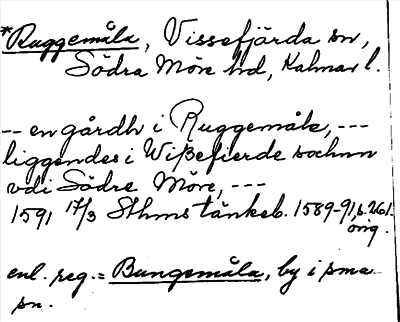 *Ruggemåla, Vissefjärda sn,
Södra Möre hd, Kalmar l.
-- en gårdh i Ruggemåle, ---
liggendes i Wißefierde sochnn
vdi Södre Möre, ---
1591 17/3 Sthms tänkeb. 1589-91, s. 261.
orig.
enl. reg. = Bungemåla, by i sma
sn.